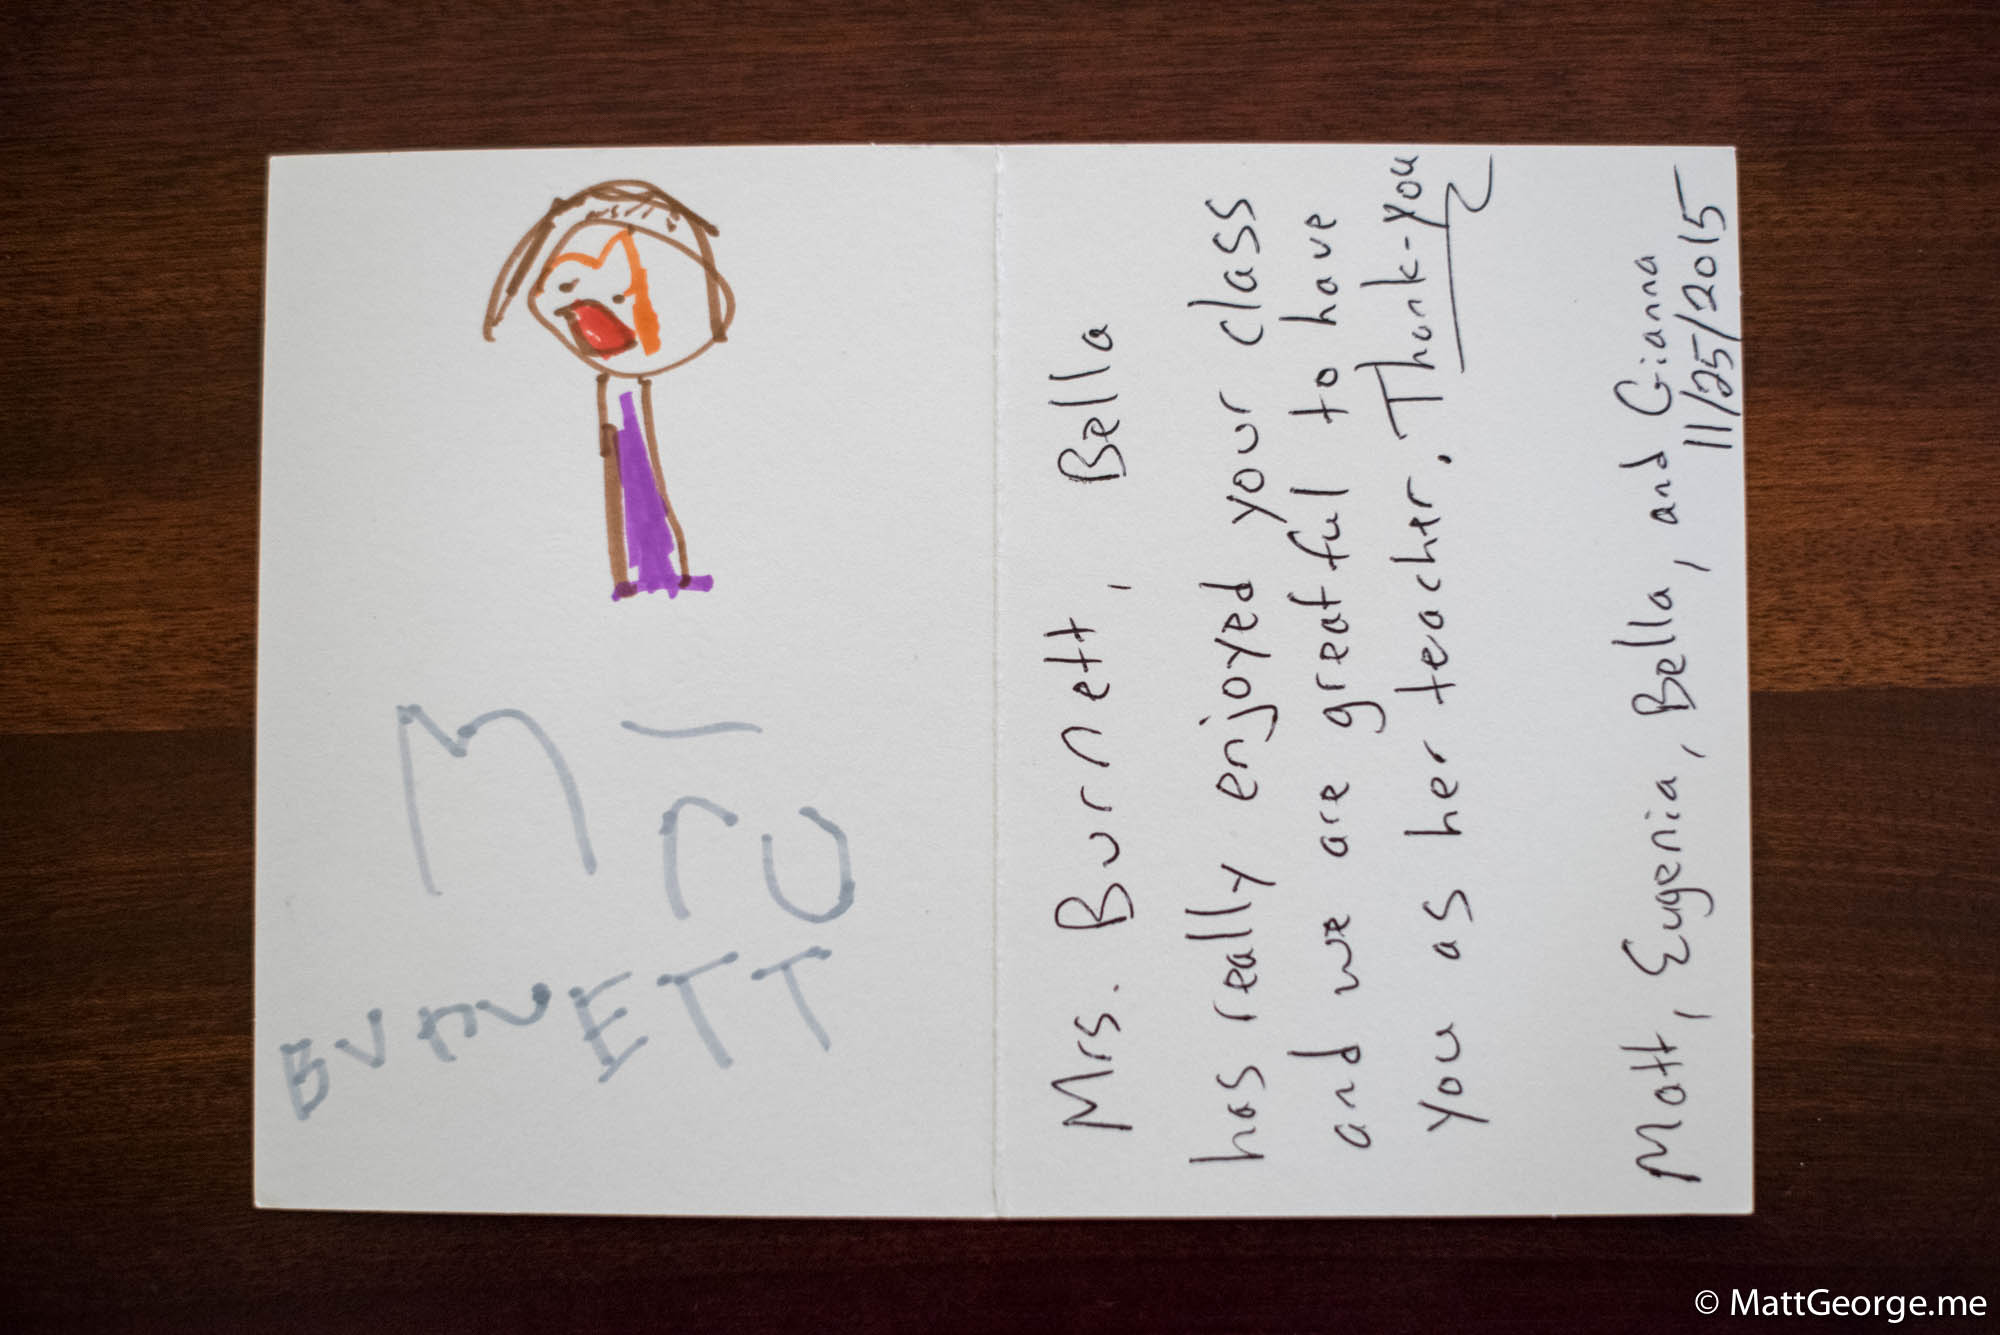 MrU
BUrnETT
Mrs. Burnett, Bella
has really enjoyed your class
and we are greatful to have
you as her teacher. Thank-you
Matt, Eugenia, Bella, and Gianna
11/25/2015
© MattGeorge.me